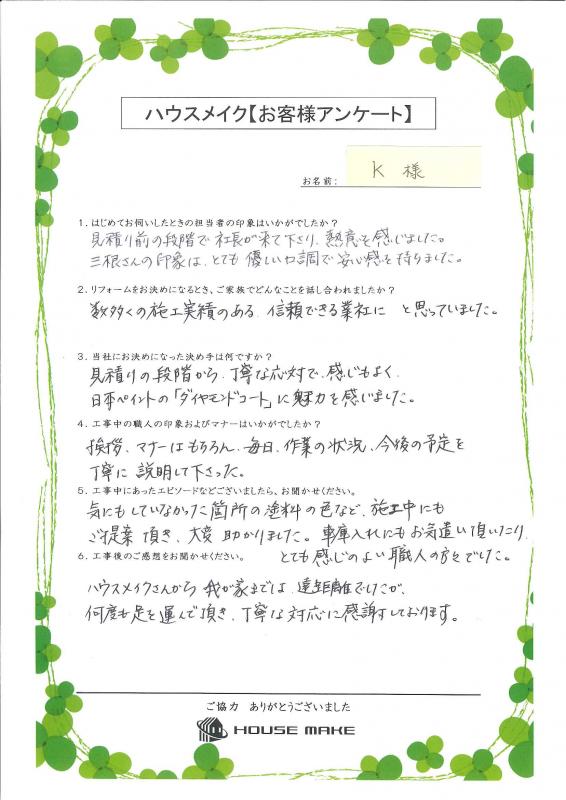 ハウスメイク【お客様アンケート】
お名前: K 様
1. はじめてお伺いしたときの担当者の印象はいかがでしたか?
見積り前の段階で社長が来て下さり、熱意を感じました。
三根さんの印象は、とても優しい口調で安心感を持ちました。
2. リフォームをお決めになるとき、ご家族でどんなことを話し合われましたか?
数多くの施工実績のある、信頼できる業社に と思っていました。
3. 当社にお決めになった決め手は何ですか?
見積りの段階から、丁寧な応対で、感じもよく、
日本ペイントの「ダイヤモンドコート」に魅力を感じました。
4. 工事中の職人の印象およびマナーはいかがでしたか?
挨拶、マナーはもちろん、毎日、作業の状況、今後の予定を
丁寧に説明して下さった。
5. 工事中にあったエピソードなどございましたら、お聞かせください。
気にもしていなかった箇所の塗料の色など、施工中にも
ご提案頂き、大変助かりました。車庫入れにもお気遣い頂いたり
とても感じのよい職人の方々でした。
6. 工事後のご感想をお聞かせください。
ハウスメイクさんから我が家までは、遠距離でしたが、
何度も足を運んで頂き、丁寧な対応に感謝しております。
ご協力 ありがとうございました
HOUSE MAKE